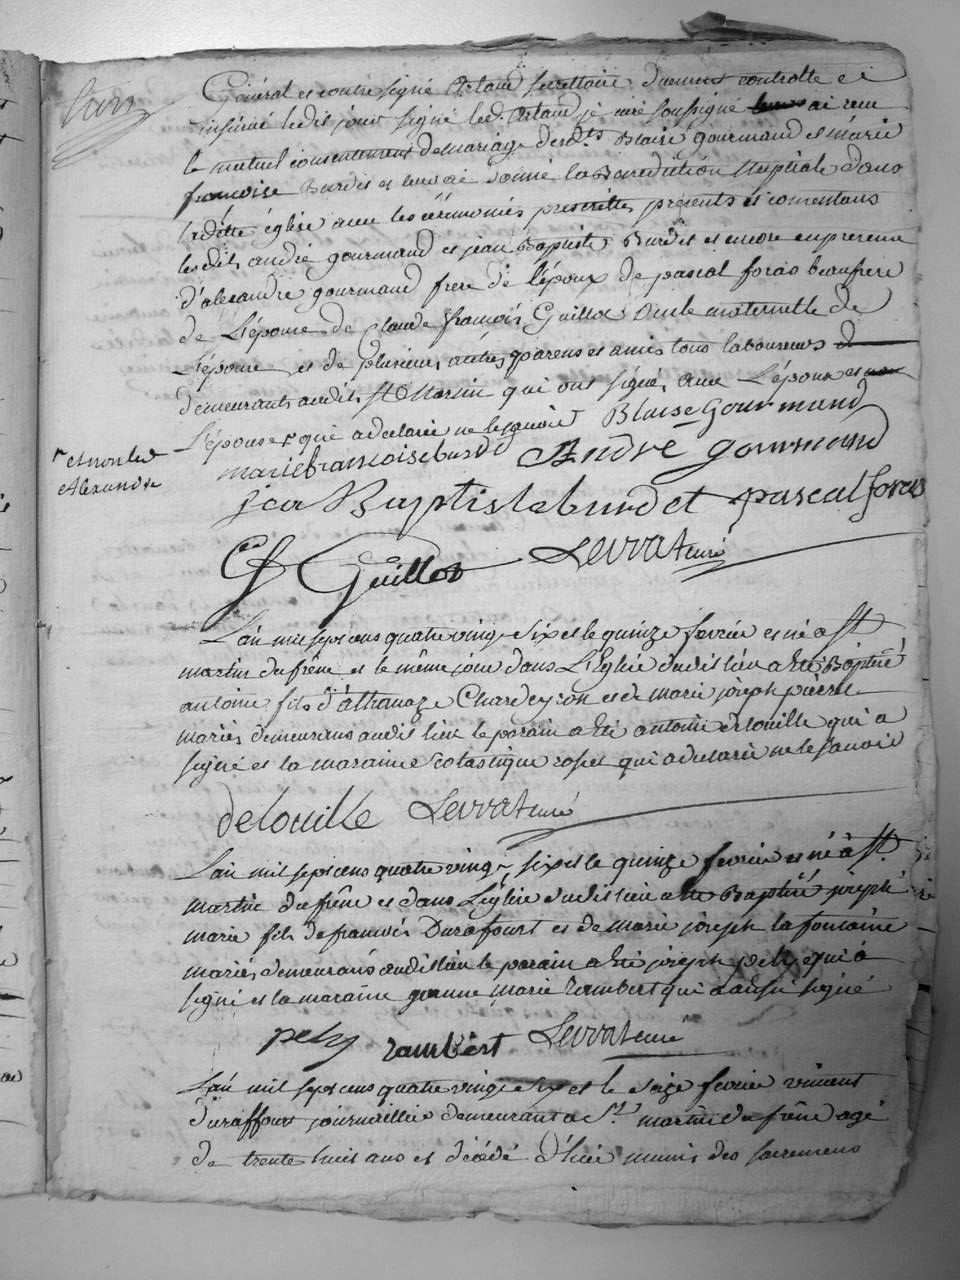 Général et contre signé Arlaud secrettaire duement controllé et
insinué ledit jour signé led. Arlaud je curé soussigné ai reçu
le mutuel consentement de mariage desdts Blaise gourmand et marie
francoise Burdet et leur ai donné la Bénédiction Nuptiale dans
laditte église avec les cérémonies prescrittes présents et consentans
lesdits andré gourmand et jean Baptiste Burdet et encore en présence
d'alexandre gourmand frere de l'époux de pascal foras beaufrere
de L'épouse de Claude françois Guillot oncle maternelle de
L'épouse et de plusieurs autres parens et amis tous laboureurs
demeurants audit St Martin qui ont signés avec L'époux et
L'épouse qui a déclaré ne le savoir Blaise Gourmand
et non led
Alexandre
marie francoise burdet André gourmand
jean Baptiste burdet pascal foras
Cf Guillot Levrat curé
L'an mil sept cens quatre vingt six et le quinze fevrier est né a St
martin du frêne et le même jour dans L'Eglise dudit lieu a été Baptisé
antoine fils d'athanaze Chardeyron et de marie joseph pierre
mariés demeurans audit lieu le parain a été antoine delouille qui a
signé et la maraine Scolastique roset qui a déclaré ne le savoir
delouille Levrat curé
L'an mil sept cens quatre vingt six et le quinze fevrier est né à St
martin du frêne et dans L'église dudit lieu a été Baptisé joseph
marie fils de francois Durafourt et de marie joseph la fontaine
mariés demeurans audit lieu le parain a été joseph pely qui a
signé et la maraine jeanne marie rambert qui a aussi signé
pely rambert Levrat curé
L'an mil sept cens quatre vingt six et le seize fevrier vincent
Duraffour journaillier demeurant a St martin du frêne agé
de trente huit ans et décédé d'hier munis des sacremens